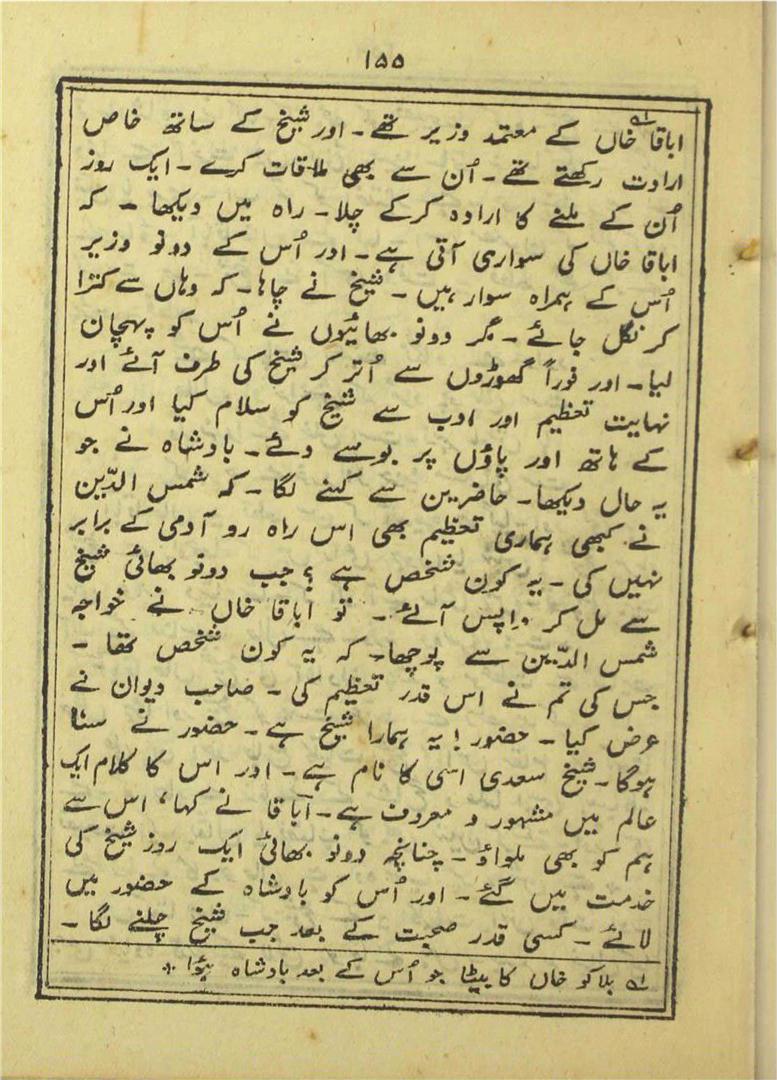 ۱۵۵
اباقا خاں کے معتمد وزیر تھے۔ اور شیخ کے ساتھ خاص
ارادت رکھتے تھے۔ اُن سے بھی ملاقات کرے۔ ایک روز
اُن کے ملنے کا ارادہ کرکے چلا۔ راہ میں دیکھا۔ کہ
اباقا خاں کی سواری آتی ہے۔ اور اُس کے دونو وزیر
اُس کے ہمراہ سوار ہیں۔ شیخ نے چاہا۔ کہ وہاں سے کترا
کر نکل جائے۔ مگر دونو بھائیوں نے اُس کو پہچان
لیا۔ اور فوراً گھوڑوں سے اُتر کر شیخ کی طرف آئے اور
نہایت تعظیم اور ادب سے شیخ کو سلام کیا اور اُس
کے ہاتھ اور پاؤں پر بوسے دئے۔ بادشاہ نے جو
یہ حال دیکھا۔ حاضرین سے کہنے لگا۔ کہ شمس الدّین
نے کبھی ہماری تعظیم بھی اس راہ رو آدمی کے برابر
نہیں کی۔ یہ کون شخص ہے؟ جب دونو بھائی شیخ
سے مل کر واپس آئے۔ تو اباقا خاں نے خواجہ
شمس الدّین سے پوچھا۔ کہ یہ کون شخص تھا۔
جس کی تم نے اس قدر تعظیم کی۔ صاحب دیوان نے
عرض کیا۔ حضور! یہ ہمارا شیخ ہے۔ حضور نے سنا
ہوگا۔ شیخ سعدی اسی کا نام ہے۔ اور اس کا کلام ایک
عالم میں مشہور و معروف ہے۔ آباقا نے کہا، اس سے
ہم کو بھی ملواؤ۔ چنانچہ دونو بھائی ایک روز شیخ کی
خدمت میں گئے۔ اور اُس کو بادشاہ کے حضور میں
لائے۔ کسی قدر صحبت کے بعد جب شیخ چلنے لگا۔
۱ہ ہلاکو خاں کا بیٹا جو اُس کے بعد بادشاہ ہوٗا ٭